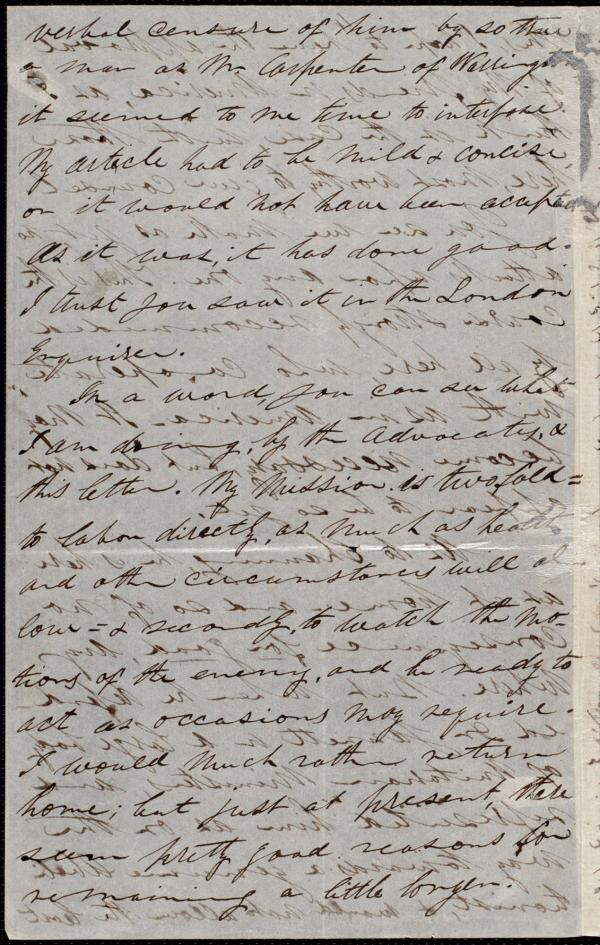 verbal censure of him by so true
a man as Mr Carpenter of Warrington
it seemed to me time to interfere.
My article had to be mild & concise
or it would not have been accepted
As it was, it has done good.
I trust you saw it in the London
Enquirer.
In a word, you can see what
I am doing, by the Advocates, &
this letter. My Mission is two fold =
to labor directly, as much as health
and other circumstances will al-
low = & secondly, to watch the mo-
tions of the enemy, and be ready to
act as occasions may require.
I would much rather return
home; but just at present, there
seem pretty good reasons for
remaining a little longer.